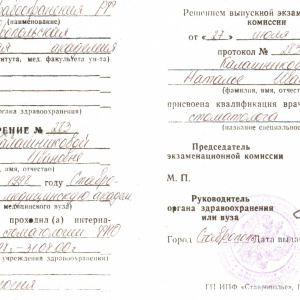 здравоохранения РФ
(наименование)
академия
института, мед. факультета ун-та)
органа здравоохранения)
РЕНИЕ № 283
Калашниковой
Ивановне
, имя, отчество)
году Ставро-
медицинскую академ
медицинского вуза)
проходил (а) интерна-
стоматологии
31.08.00г.
учреждения здравоохранения)
Решением выпускной экзам
комиссии
от « 27 » июля
протокол № 283
Калашников
Наталье Ива
(фамилия, имя, отчест
присвоена квалификация врач
стоматолога
(название специально
Председатель
экзаменационной комиссии
М. П.
Руководитель
органа здравоохранения
или вуза
Город Ставрополь Дата выда
ГП ИПФ «Ставрополье»,